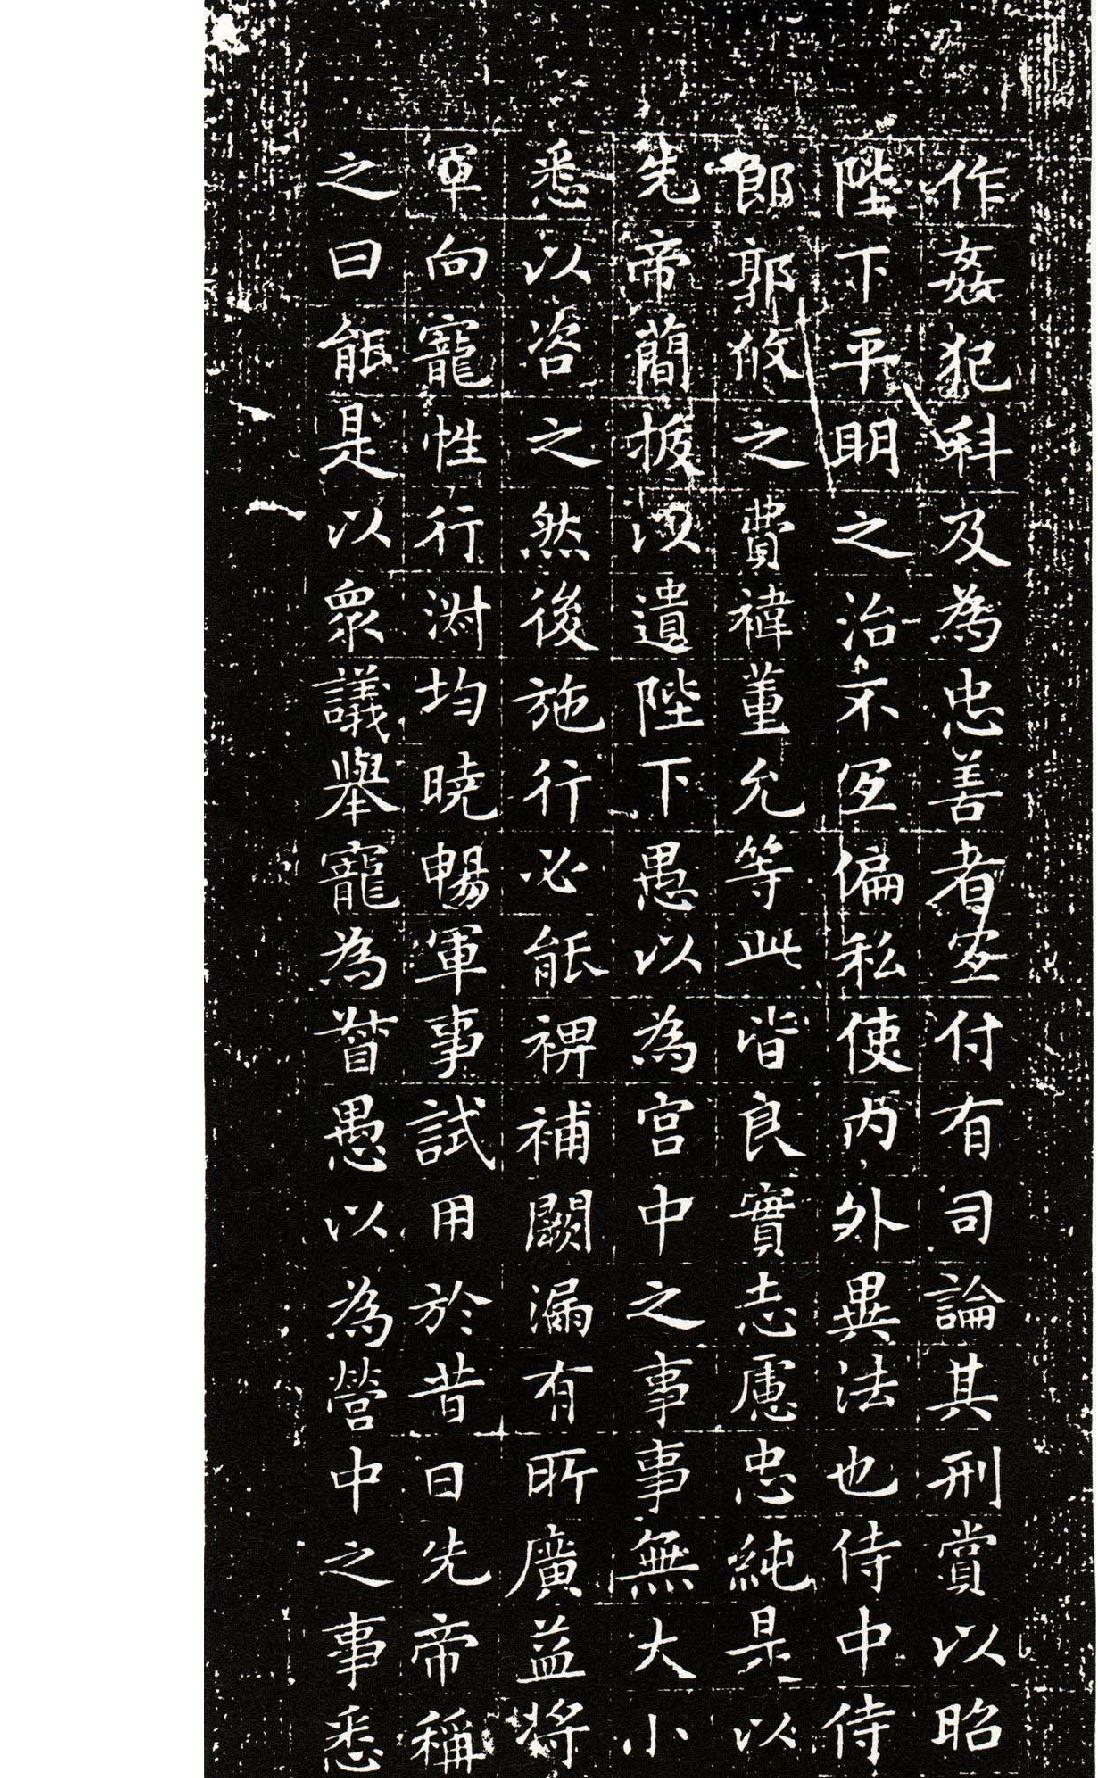 作姦犯科及為忠善者宜付有司論其刑賞以昭
陛下平明之治不宜偏私使內外異法也侍中侍
郎郭攸之費禕董允等此皆良實志慮忠純是以
先帝蕳拔以遺陛下愚以為宮中之事事無大小
悉以咨之然後施行必能裨補闕漏有所廣益將
軍向寵性行淑均曉暢軍事試用於昔日先帝稱
之曰能是以眾議舉寵為督愚以為營中之事悉